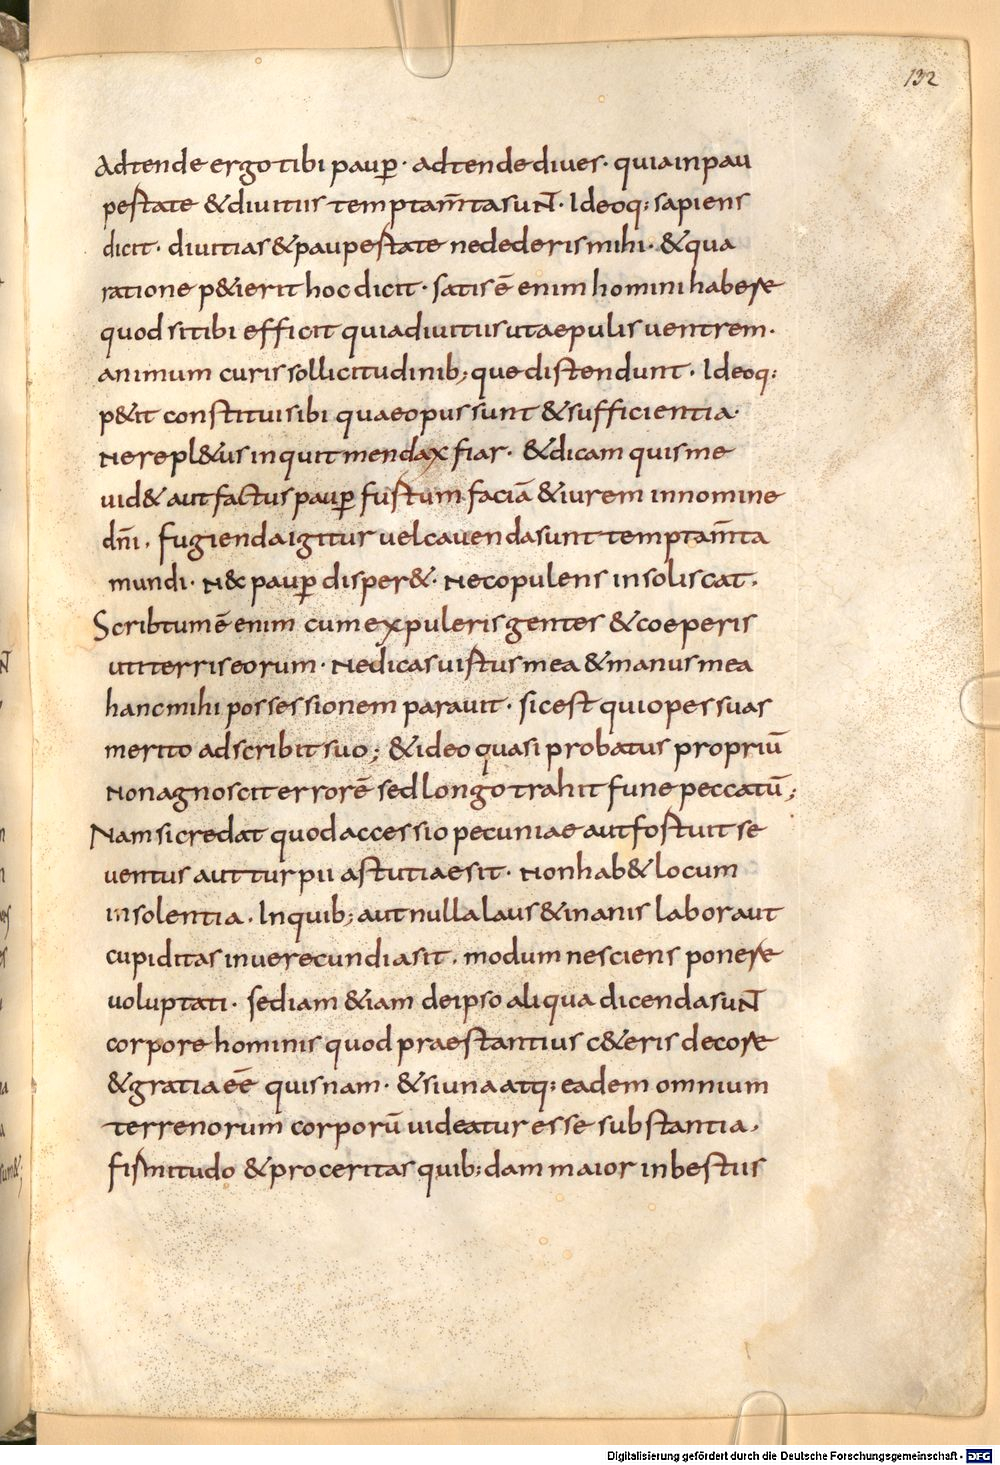 132
Adtende ergo tibi paup̄· adtende diues· quia in pau
pestate & diuitiis temptam̄ta suNT· Ideoq: sapiens
dicit· diuitias & paupestate ne dederis mihi· & qua
ratione p&ierit hoc dicit· satis ē enim homini habere
quod sit ibi efficit quia diuitiis ut aepulis uentrem·
animum curis sollicitudinib; que distendunt· Ideoq:
p&it constitui sibi quae opus sunt & sufficientia·
Ne repl&us inquit mendax fiar· & dicam quis me
uid& aut factus paup̄ fustum faciā & iurem in nomine
dn̄i· fugienda igitur uel cauenda sunt temptam̄ta
mundi· N& paup̄ disper&· Nec opulens insoliscat·
Scribtum ē enim cum expuleris gentes & coeperis
uti terris eorum· Ne dicas uistus mea & manus mea
hanc mihi possessionem parauit· sic est qui opes suas
merito adscribit suo; & ideo quasi probatus propriū
Non agnoscit errorē sed longo trahit fune peccatū;
Nam si credat quod accessio pecuniae aut fostuit se
uentus aut turpii astutiae sit· Non hab& locum
insolentia· In quib; aut nulla laus & inanis labor aut
cupiditas inuerecundia sit· modum nesciens ponere
uoluptati· sed iam &iam de ipso aliqua dicenda suNT
corpore hominis quod praestantius c&eris decore
& gratia eē quis nam· & si una atq: eadem omnium
terrenorum corporū uideatur esse substantia·
fismitudo & proceritas quib:dam maior in bestiis
Digitalisierung gefördert durch die Deutsche Forschungsgemeinschaft · DFG